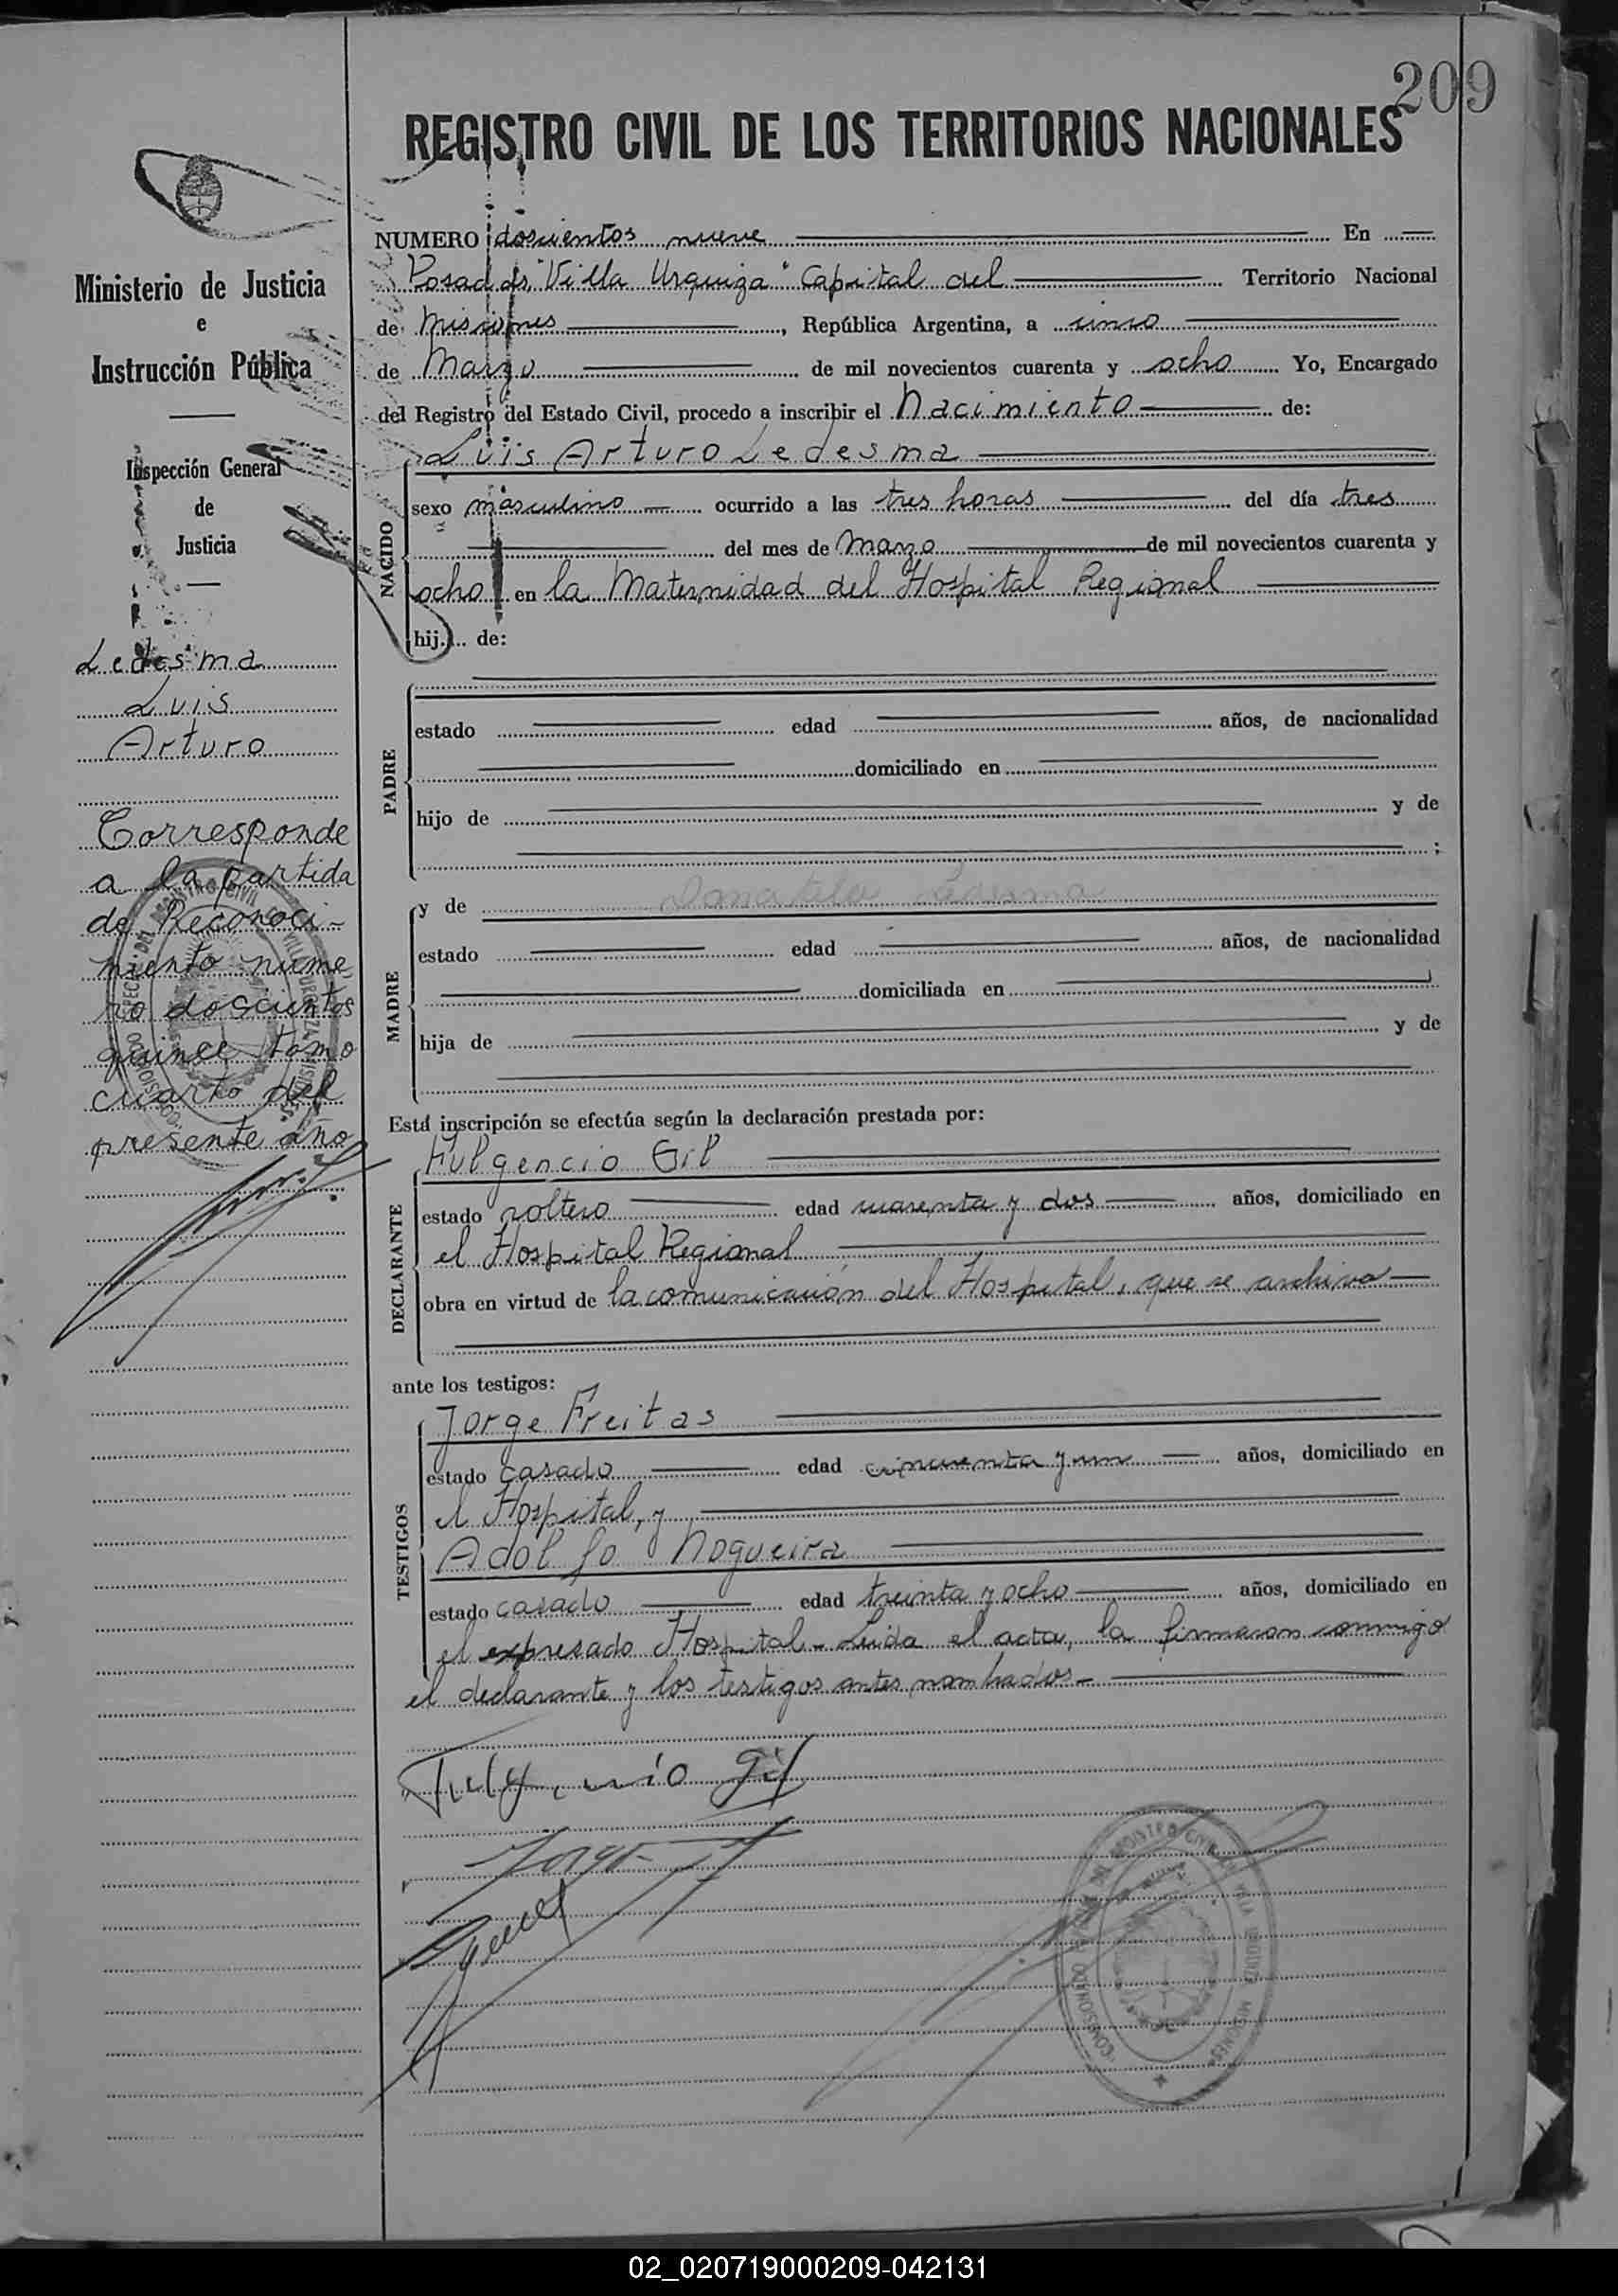 209
REGISTRO CIVIL DE LOS TERRITORIOS NACIONALES
NUMERO doscientos nueve En
Posadas, "Villa Urquiza" Capital del Territorio Nacional
de Misiones, República Argentina, a
de Marzo de mil novecientos cuarenta y ocho Yo, Encargado
del Registro del Estado Civil, procedo a inscribir el Nacimiento de:
Luis Arturo Ledesma
NACIDO
sexo masculino ocurrido a las tres horas del día tres
del mes de Marzo de mil novecientos cuarenta y
ocho en la Maternidad del Hospital Regional
hij... de:
PADRE
estado edad años, de nacionalidad
domiciliado en
hijo de y de
;
MADRE
y de
estado edad años, de nacionalidad
domiciliada en
hija de y de
Está inscripción se efectúa según la declaración prestada por:
DECLARANTE
Fulgencio Gil
estado soltero edad cuarenta y dos años, domiciliado en
el Hospital Regional
obra en virtud de la comunicación del Hospital, que se archiva
ante los testigos:
TESTIGOS
Jorge Freitas
estado casado edad cincuenta y un años, domiciliado en
el Hospital, y
Adolfo Nogueira
estado casado edad treinta y ocho años, domiciliado en
el expresado Hospital - Leida el acta, la firmaron conmigo
el declarante y los testigos antes nombrados -
Fulgencio Gil
Ministerio de Justicia
e
Instrucción Pública
Inspección General
de
Justicia
Ledesma
Luis
Arturo
Corresponde
a la partida
de Reconoci-
miento núme-
ro doscientos
quince tomo
cuarto del
presente año
02_020719000209-042131